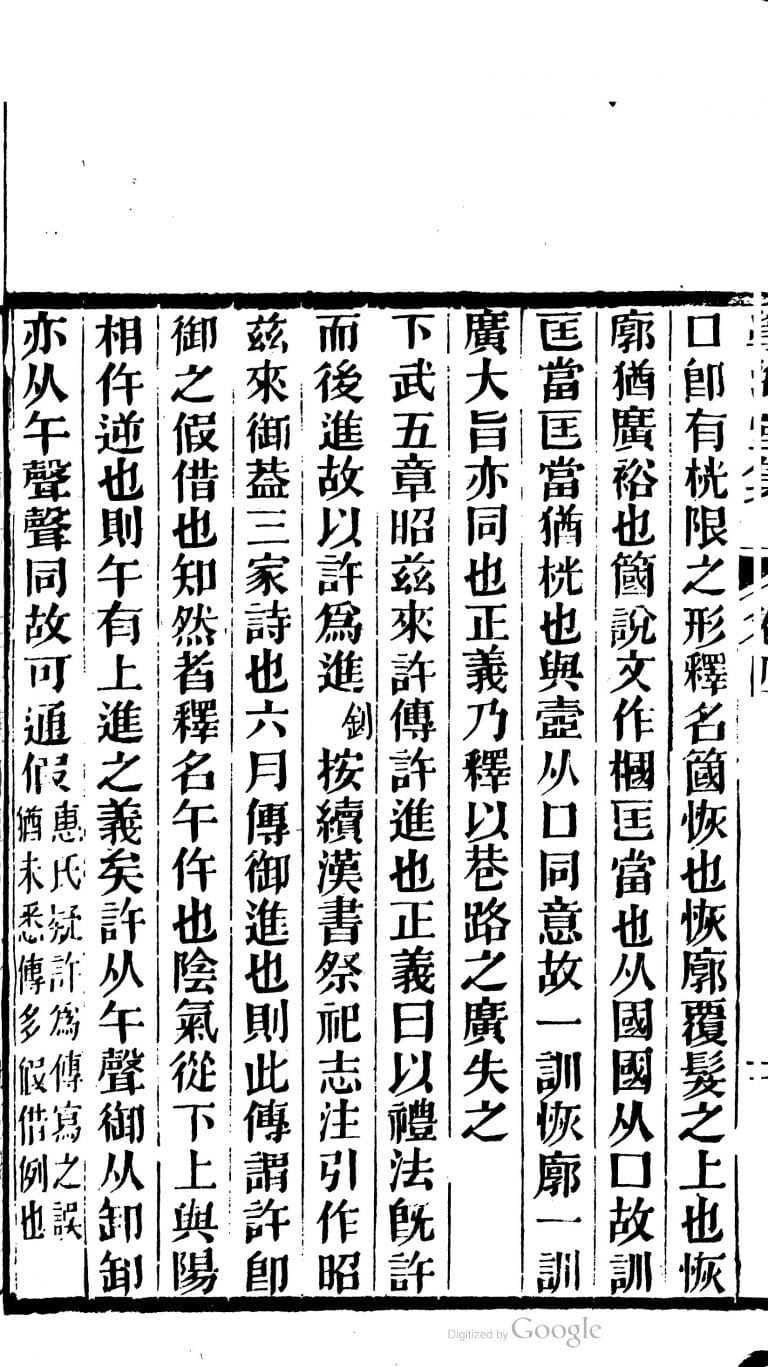 口卽有桄限之形釋名簂恢也恢廓覆髮之上也恢
廓猶廣裕也簂說文作槶匡當也从國國从口故訓
匡當匡當猶桄也與壼从口同意故一訓恢廓一訓
廣大旨亦同也正義乃釋以巷路之廣失之
下武五章昭兹來許傳許進也正義曰以禮法旣許
而後進故以許爲進釗按續漢書祭祀志注引作昭
兹來御葢三家詩也六月傳御進也則此傳謂許卽
御之假借也知然者釋名午仵也陰氣從下上與陽
相仵逆也則午有上進之義矣許从午聲御从卸卸
亦从午聲聲同故可通假惠氏疑許爲傳寫之誤
猶未悉傳多假借例也
Digitized by Google